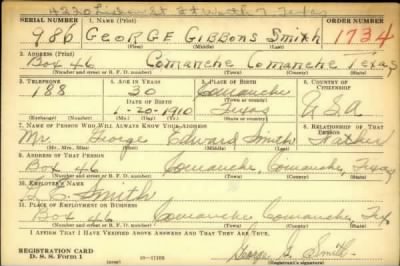 4220 St Ft Worth 7 Texas
SERIAL NUMBER 1. NAME (Print) ORDER NUMBER
986 GEORGE GIBBONS Smith 1734
(First) (Middle) (Last)
2. ADDRESS (Print)
Box 46 Comanche Comanche Texas
(Number and street or R. F. D. number) (Town) (County) (State)
3. TELEPHONE 4. AGE IN YEARS 5. PLACE OF BIRTH 6. COUNTRY OF CITIZENSHIP
188 30 Comanche
DATE OF BIRTH (Town or county)
1-20-1910 Texas USA
(Exchange) (Number) (Mo.) (Day) (Yr.) (State or country)
7. NAME OF PERSON WHO WILL ALWAYS KNOW YOUR ADDRESS 8. RELATIONSHIP OF THAT PERSON
Mr. George Edward Smith Father
(Mr., Mrs., Miss) (First) (Middle) (Last)
9. ADDRESS OF THAT PERSON
Box 46 Comanche, Comanche, Texas
(Number and street or R. F. D. number) (Town) (County) (State)
10. EMPLOYER'S NAME
Smith
11. PLACE OF EMPLOYMENT OR BUSINESS
Box 46 Comanche Comanche Tex
(Number and street or R. F. D. number) (Town) (County) (State)
I AFFIRM THAT I HAVE VERIFIED ABOVE ANSWERS AND THAT THEY ARE TRUE.
REGISTRATION CARD
D. S. S. Form 1 George G. Smith
(Registrant's signature)